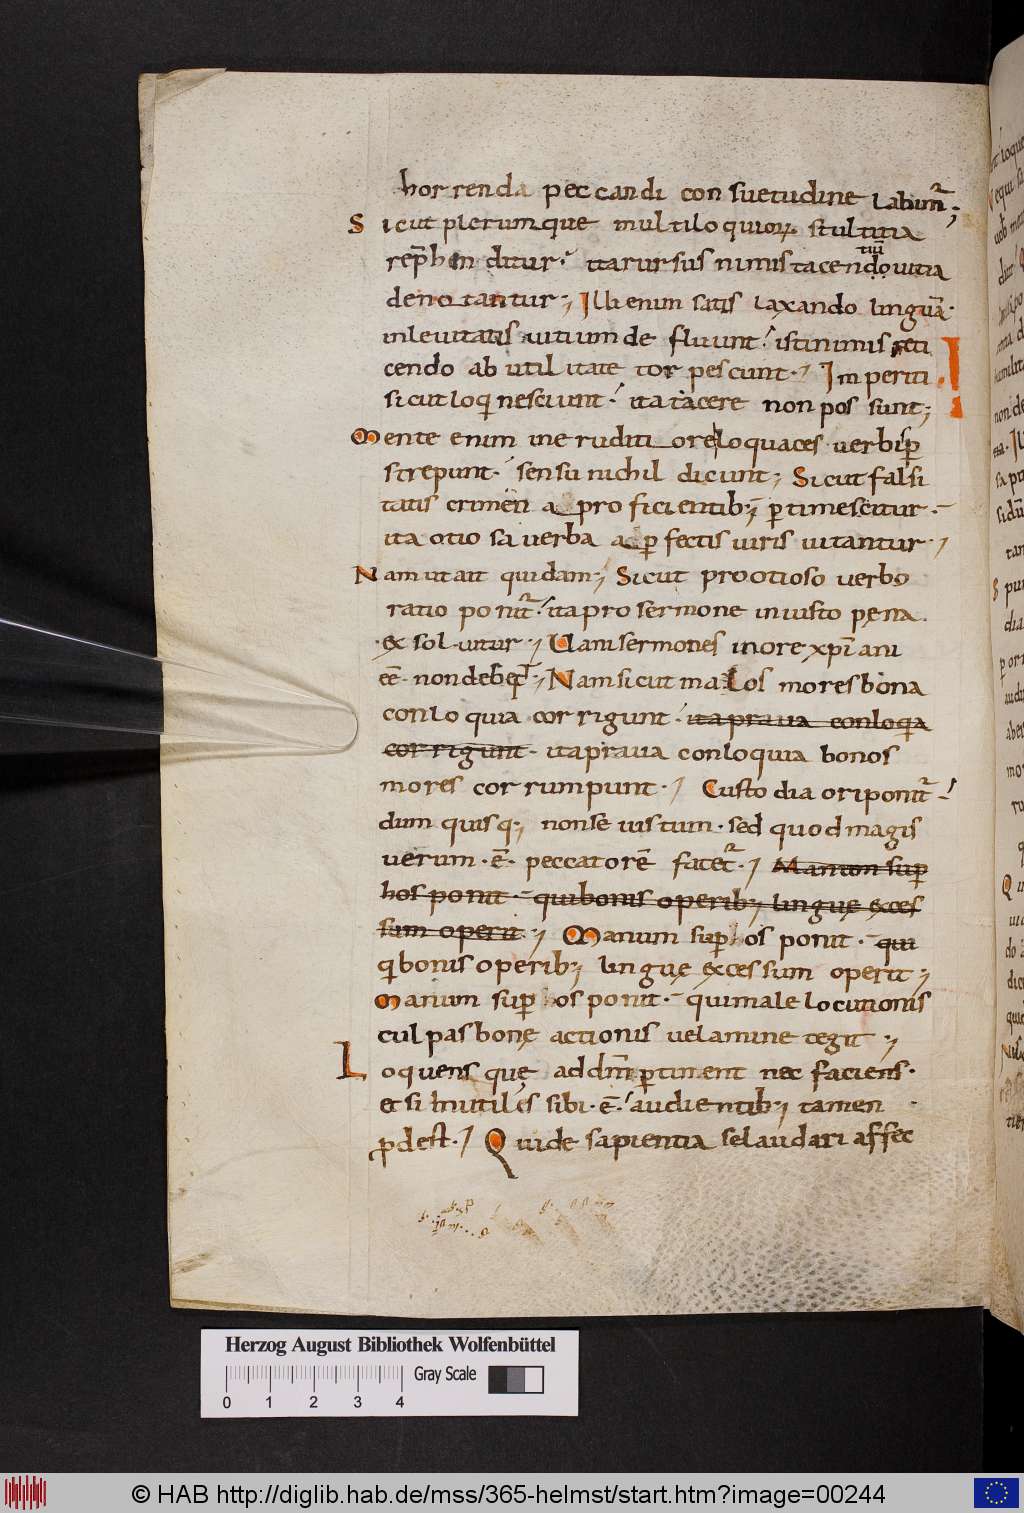 horrenda peccandi consuetudine labunt᷑;
Sicut plerumque multiloquioꝝ stultitia
rep̄henditur·́ ita rursus nimis tacendo uitia
tiū
denotantur; Illi enim satis laxando linguā·
in leuitatis uitium defluunt·́ isti nimis reti
cendo ab utilitate torpescunt· Imperiti
sicut loqi nesciunt·́ ita tacere non possunt;
Mente enim ineruditi ore loquaces uerbis ꝑ
strepunt·́ sensu nichil dicunt; Sicut falsi
tatis crimen a proficientib; ꝑtimescitur·
ita otiosa uerba a ꝑfectis uiris uitantur·
Nam ut ait quidam; Sicut pro otioso uerbo
ratio ponit᷑·́ ita pro sermone iniusto pęna
exsoluitur·; Uani sermones in ore xp̄iani
eē· non debent·; Nam sicut malos mores bona
conloquia corrigunt· ita praua conloqia
corrigunt· ita praua conloquia bonos
mores corrumpunt· Custodia ori ponit᷑·
dum quisq; non se iustum· sed quod magis
uerum· ē· peccatorē fatet᷑· Manum suꝑ
hos ponit· qui bonis operib; linguę exces
sum operit·; Manum suꝑ os ponit· qui
qi bonis operib; linguę excessum operit;
Manum suꝑ os ponit· qui male locutionis
culpas bonę actionis uelamine tegit;
Loquens quę ad dm̄ ꝑtinent nec faciens·
et si inutilis sibi· ē·́ audientib; tamen
ꝓdest· Qui de sapientia se laudari affec
Herzog August Bibliothek Wolfenbüttel
Gray Scale
0 1 2 3 4
© HAB http://diglib.hab.de/mss/365-helmst/start.htm?image=00244